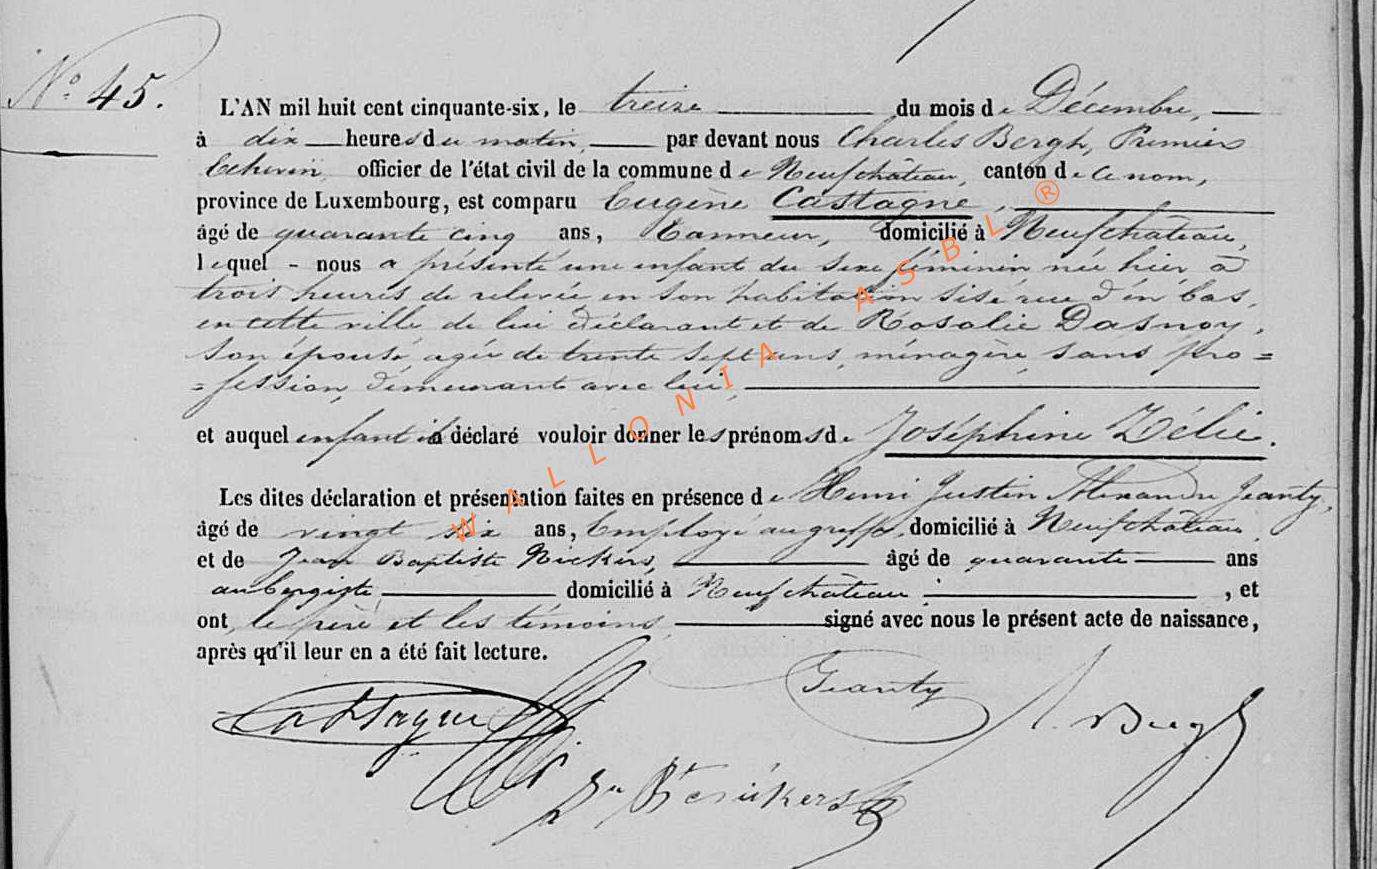 N° 45.
L'AN mil huit cent cinquante-six, le treize du mois de Décembre,
à dix heures du matin, par devant nous Charles Bergh, Premier
Echevin, officier de l'état civil de la commune de Neufchâteau, canton de ce nom,
province de Luxembourg, est comparu Eugène Castagne,
âgé de quarante cinq ans, Tanneur, domicilié à Neufchâteau,
lequel - nous a présenté une enfant du sexe féminin née hier à
trois heures de relevée en son habitation sise rue d'en bas,
en cette ville de lui déclarant et de Rosalie Dasnoy,
son épouse, agée de trente sept ans, ménagère, sans pro=
=fession, demeurant avec lui,
et auquel enfant il a déclaré vouloir donner les prénoms de Joséphine Zélie.
Les dites déclaration et présentation faites en présence de Henri Justin Alexandre Jeanty,
âgé de vingt six ans, Employé au greffe, domicilié à Neufchâteau
et de Jean Baptiste Nickers, âgé de quarante ans
aubergiste, domicilié à Neufchâteau, , et
ont, le père et les témoins, signé avec nous le présent acte de naissance,
après qu'il leur en a été fait lecture.
Castagne Jeanty Bergh
Jn Bte nickers
WALLONIA ASBL ®